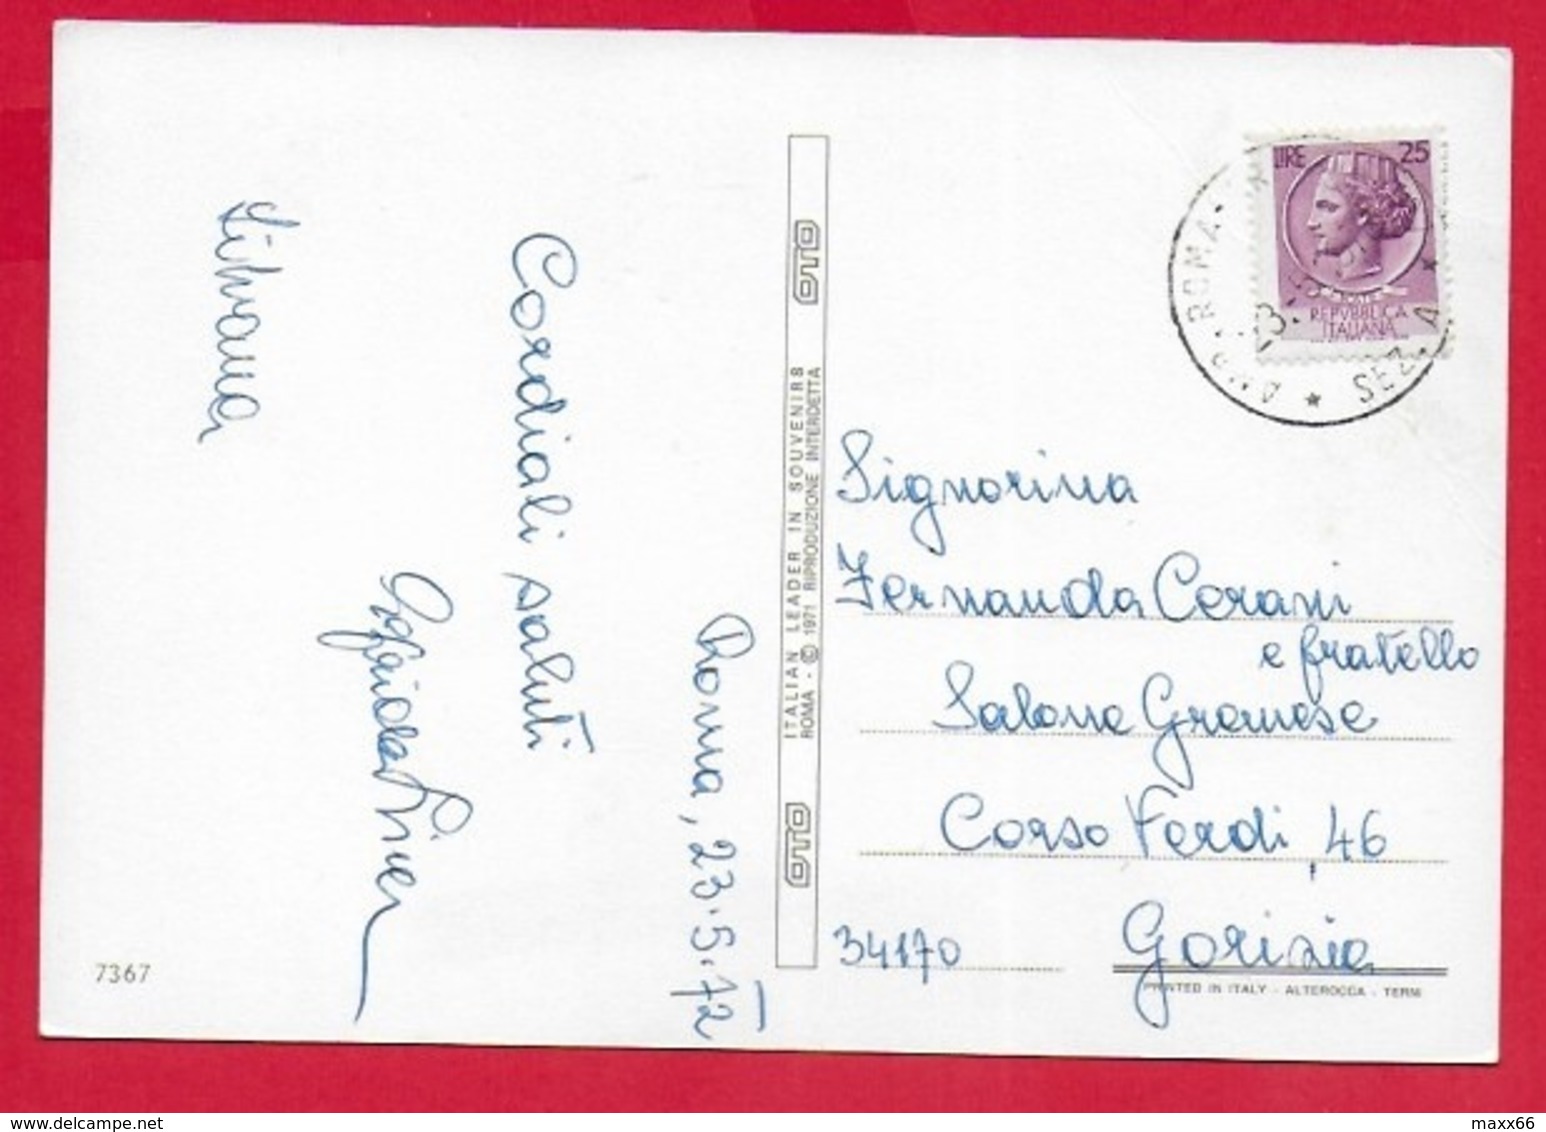 Silvana
Cordiali saluti
Roma, 23.5.72
7367
OTO
ITALIAN LEADER IN SOUVENIRS
ROMA - © 1971 RIPRODUZIONE INTERDETTA
OTO
LIRE 25
REPVBBLICA
ITALIANA
ROMA
SEZ. A
Signorina
Fernanda Cerani
e fratello
Salone Gramese
Corso Verdi 46
34170 Gorizia
PRINTED IN ITALY - ALTEROCCA - TERNI
www.delcampe.net
maxx66